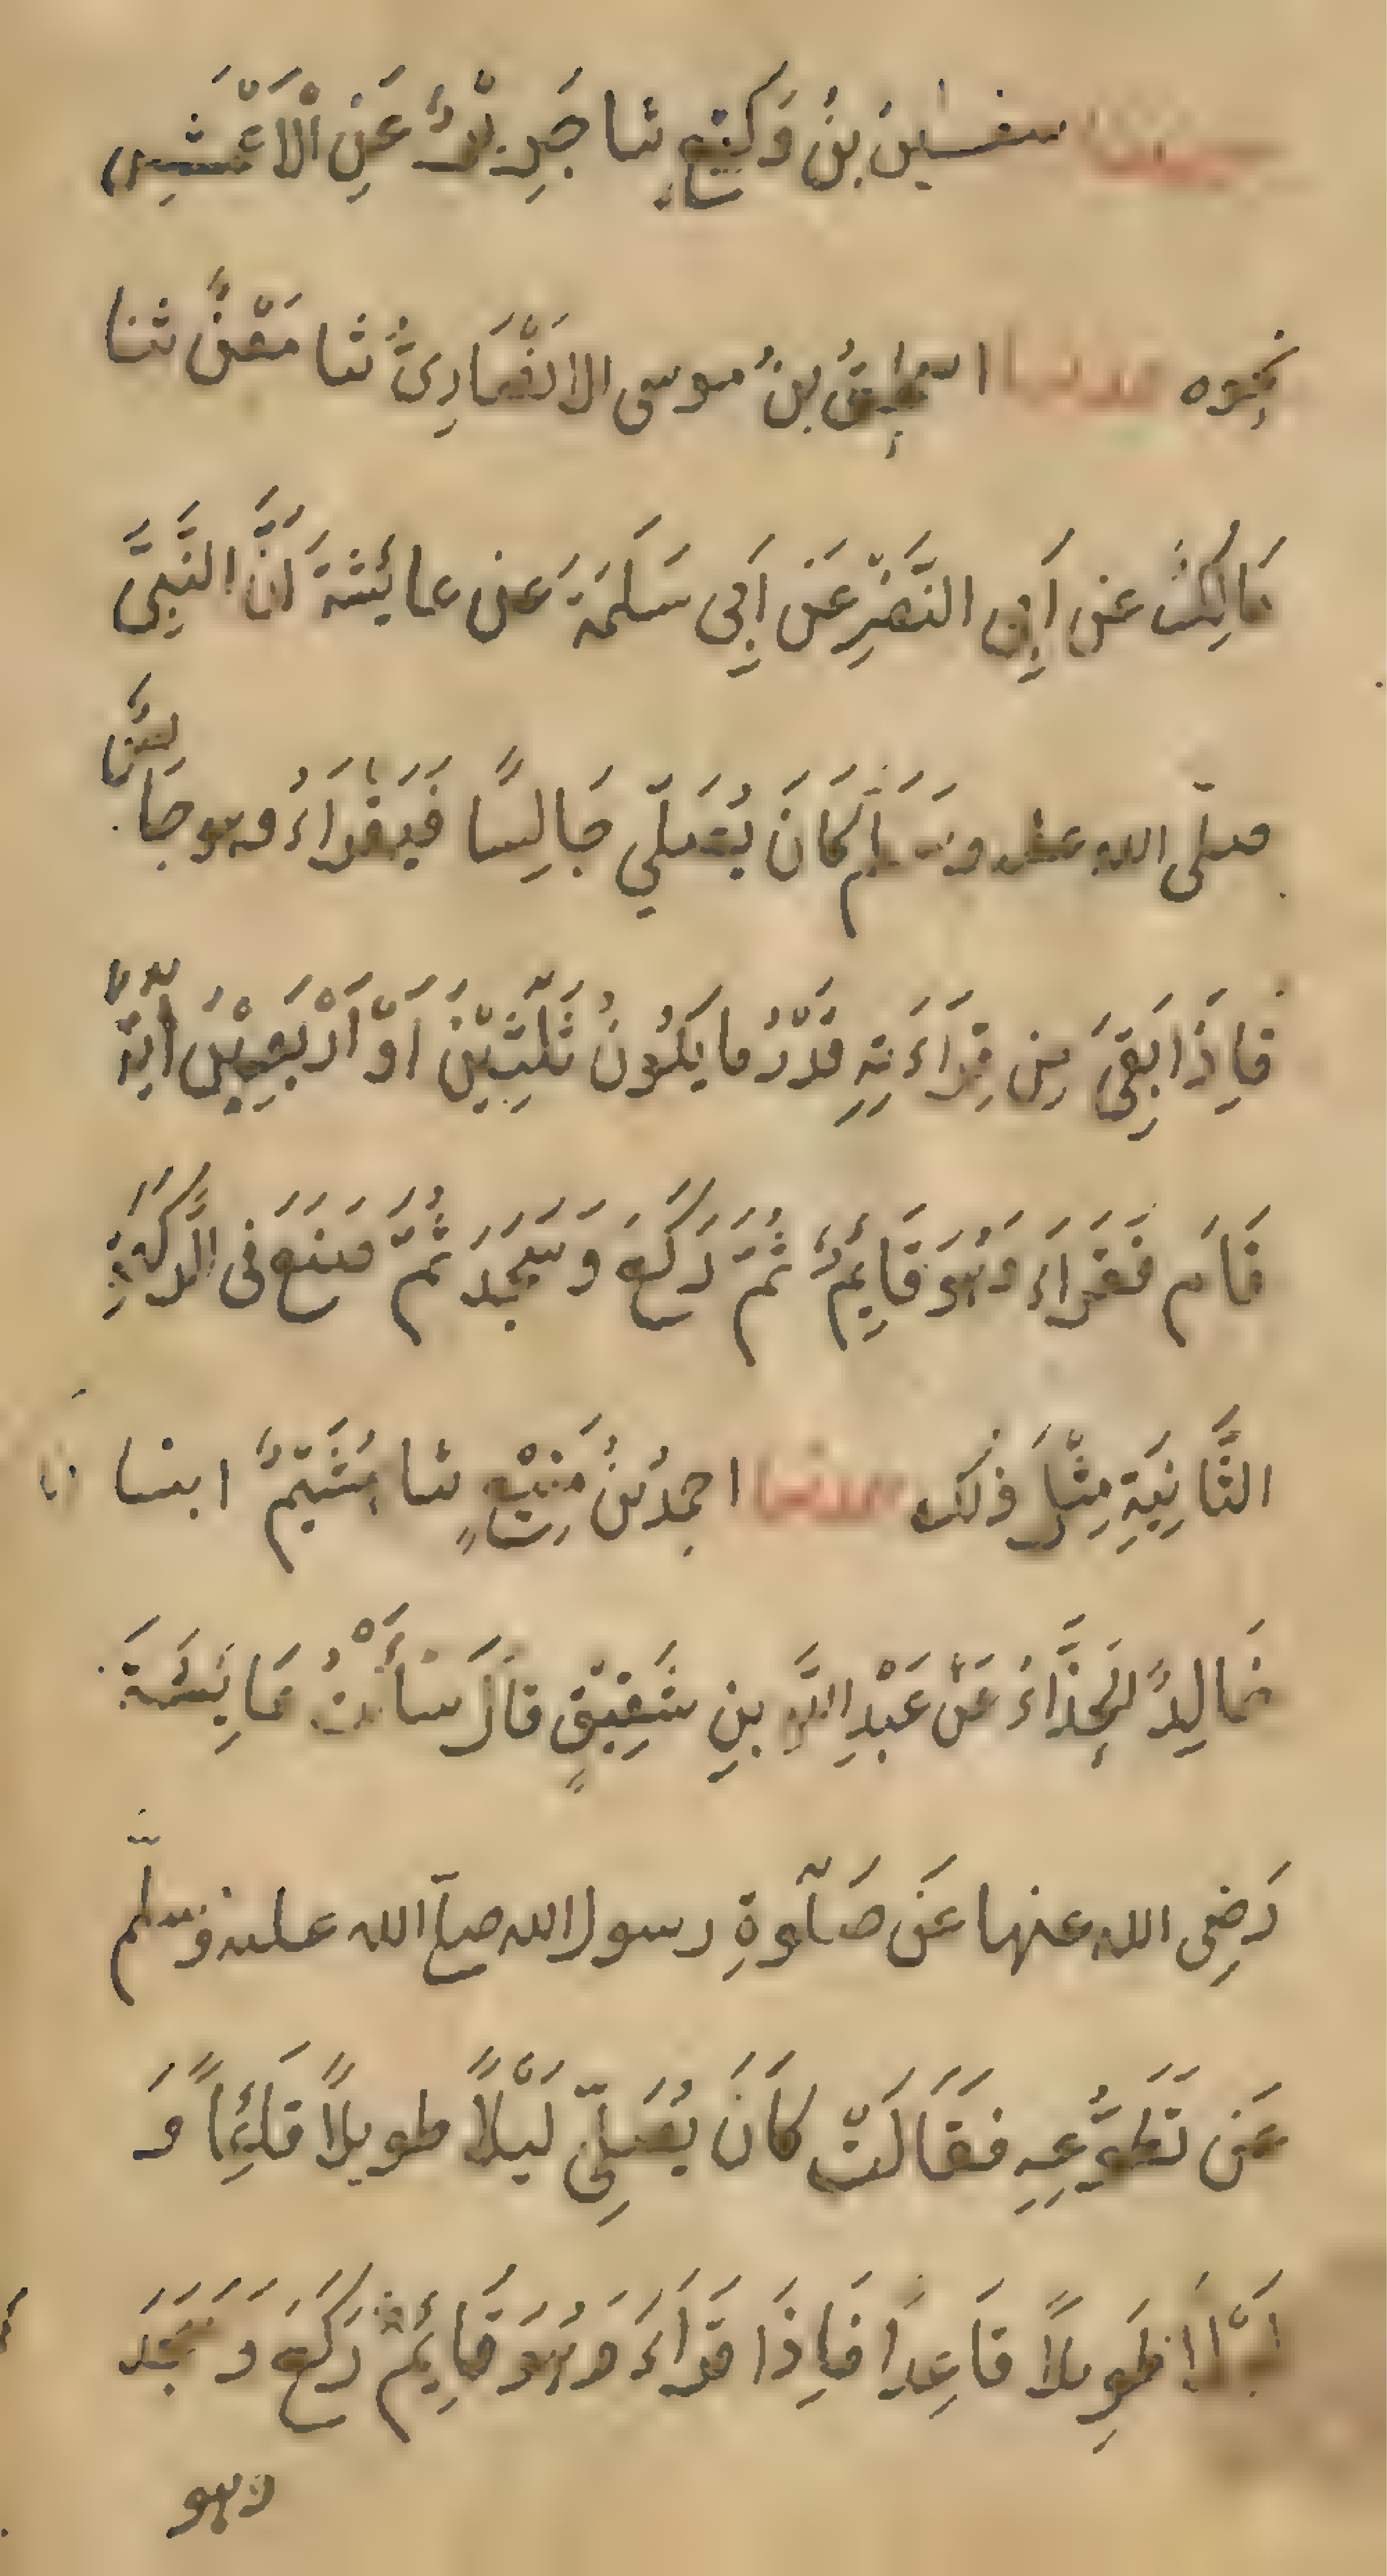 حدثنا سفيٰن بنُ وَكيْعٍ ثنا جَرِيْرٌ عَنِ الْاَعْمَشِ
نحوه حدثنا اسحٰقُ بنُ موسى الانْصَارِىُّ ثنا مَعْنٌ ثنا
مَالِكٌ عن اَبِى النَّضْرِ عَن اَبِى سَلَمَةَ عن عائِشةَ اَنَّ النَّبِىَّ
صلّى الله عليه وسَلَّم كَانَ يُصَلّي جَالِسًا فَيَقْرَاءُ وهو جَالِسٌ
فاِذَا بَقِىَ مِن قِرَاءَتِهِ قَدْرُ ما يَكُونُ ثَلٰثِيْنَ اَوْ اَرْبَعِيْنَ اٰيَةً
قَام فَقَرَاءَ وَهُوَ قَايِمٌ ثُمَّ رَكَعَ وَسَجَدَ ثُمَّ صَنَعَ فى الرَّكْعَةِ
الثَّانِيَةِ مِثْلَ ذلك حدثنا احمدُ بْنُ مَنِيْعٍ ثنا هُشَيْمٌ ابنا انا
خَالِدٌ الحَذَّاءُ عَنْ عَبْدِ اللَّهِ بنِ شَقِيْقٍ قالَ سَأَلْتُ عَايِشَةَ
رَضِى الله عنها عَن صَلٰوةِ رسول الله صلى الله عليه وسلَّم
عَن تَطَوُّعِهِ فقَالَتْ كَانَ يُصَلِّى لَيْلًا طويلًا قائِمًا وَ
لَيْلًا طَوِيلًا قَاعِدًا فَاِذَا قَرَاءَ وَهُوَ قَايِمٌ رَكَعَ وَسَجَدَ
وهو